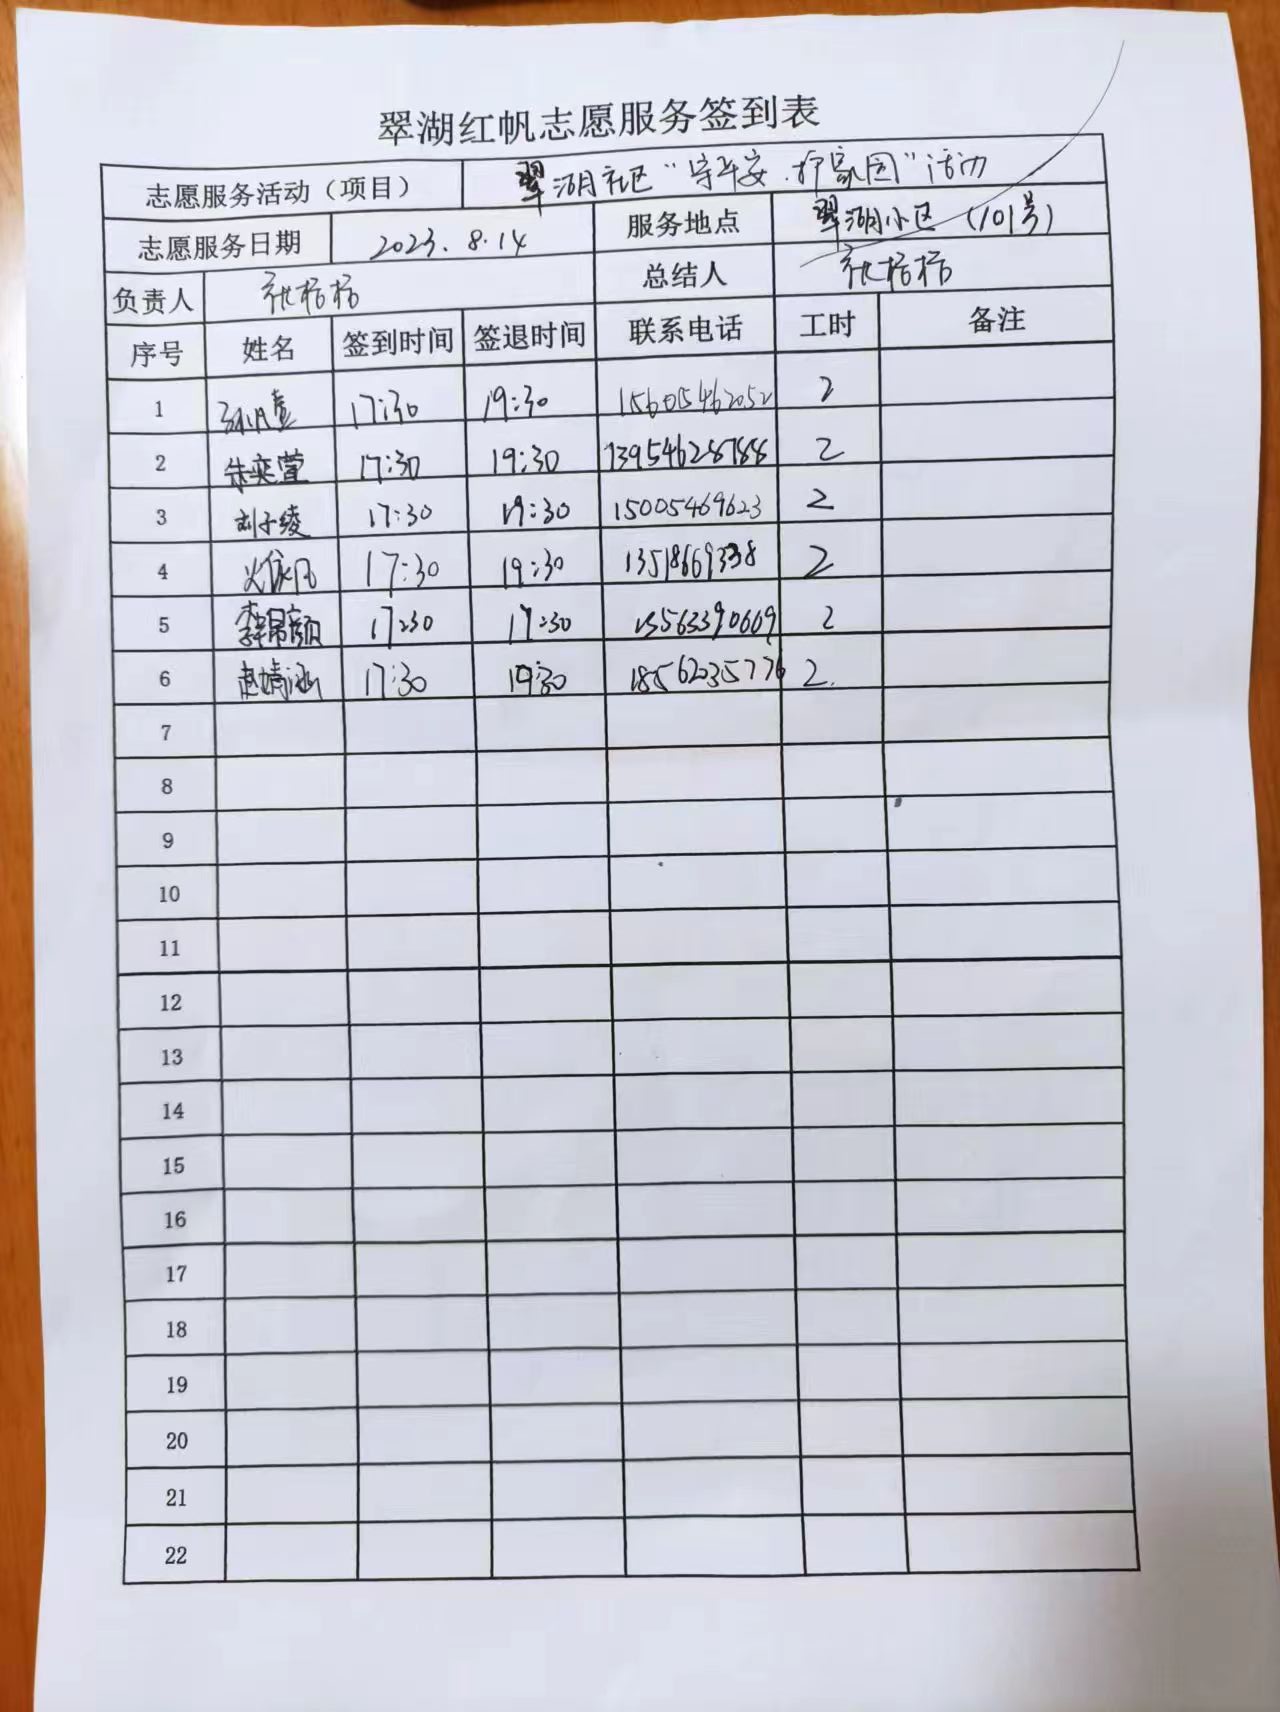 翠湖红帆志愿服务签到表
志愿服务活动（项目） 翠湖社区“守平安.护家园”活动
志愿服务日期 2023.8.14 服务地点 翠湖小区（101号）
负责人 总结人
序号 姓名 签到时间 签退时间 联系电话 工时 备注
1 17:30 19:30 15605462052 2
2 朱奕萱 17:30 19:30 13954628788 2
3 刘子绫 17:30 19:30 15005469623 2
4 17:30 19:30 2
5 17:30 19:30 13563390669 2
6 赵婧涵 17:30 19:30 18562035776 2.
7
8
9
10
11
12
13
14
15
16
17
18
19
20
21
22